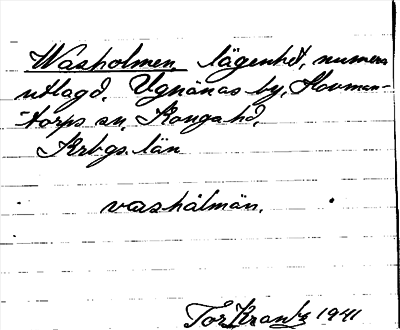 Washolmen, lägenhet, numera
utlagd, Ugnanäs by, Hovman-
torps sn, Konga hd,
Krbgs. län
vashålmän.
Tor Krantz 1941